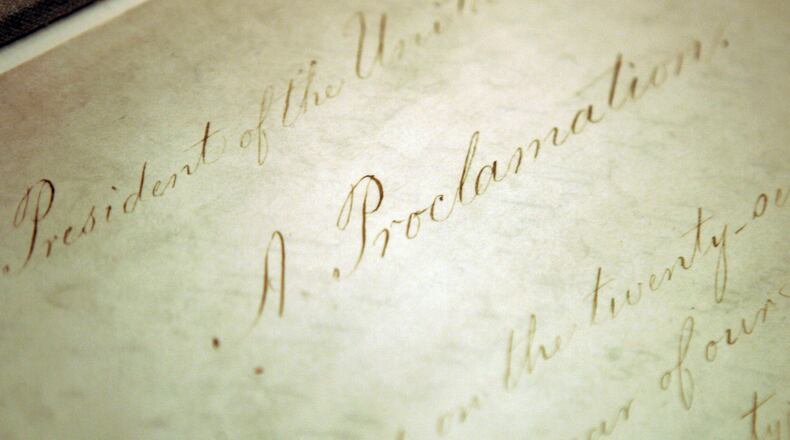 President of the Uni
A Proclamation.
on the twenty-se
ar of our
ty